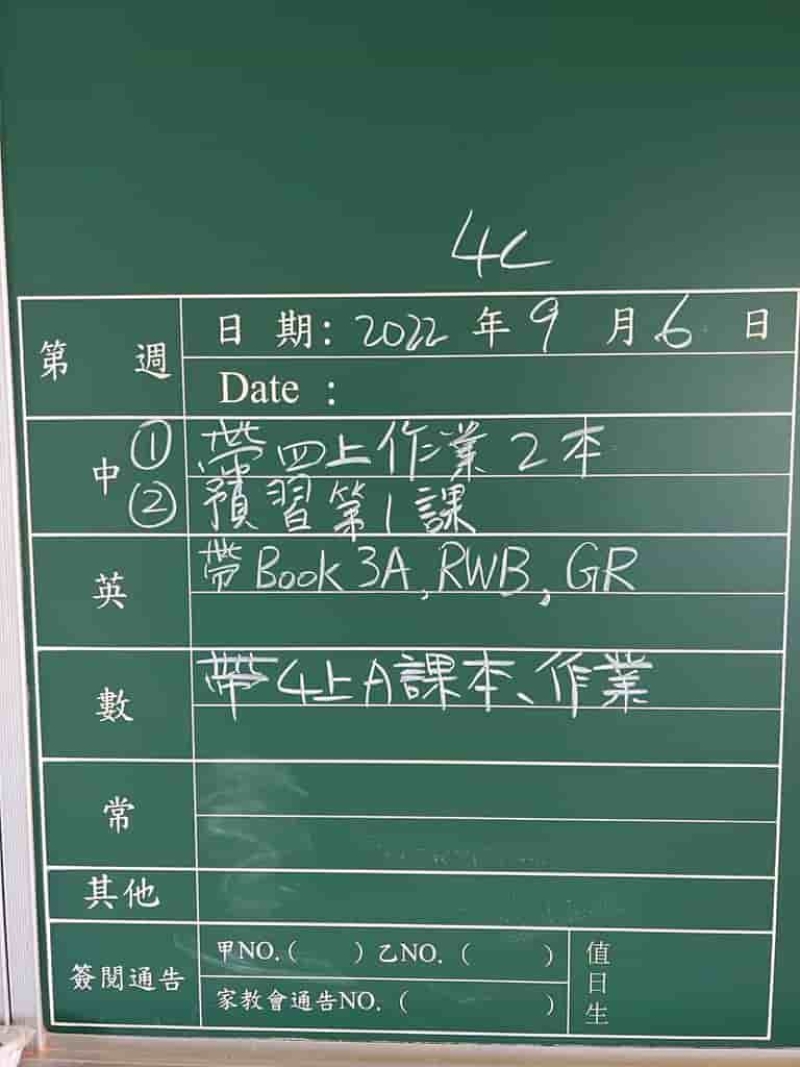 4C
第 週
日 期: 2022 年 9 月 6 日
Date :
中 ① 帶四上作業2本
② 預習第1課
英 帶Book 3A, RWB, GR
數 帶4上A課本、作業
常
其他
簽閱通告
甲NO.( ) 乙NO. ( )
家教會通告NO. ( )
值日生